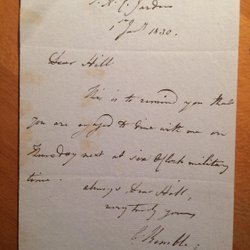 C. Garden
1st Jany 1830.
Dear Hill
This is to remind you that
you are engaged to dine with me on
Thursday next at six O'Clock military
time.
always Dear Hill,
very truly yours
C. Kemble.